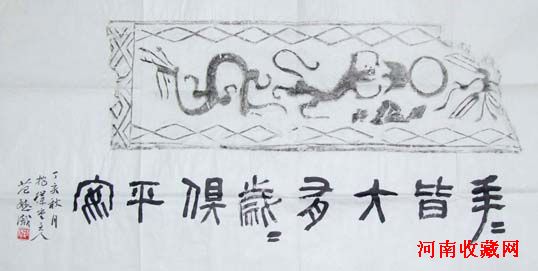 年〻皆大有歲〻俱平安
丁亥秋月
河南收藏网